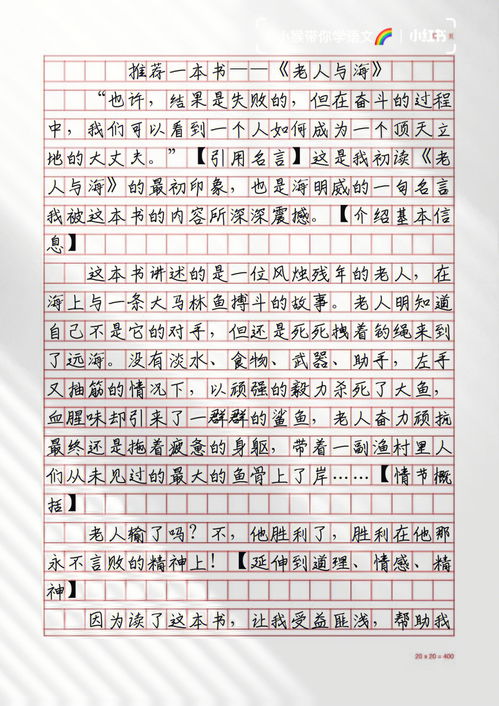 小猴带你学语文 小红书
推荐一本书——《老人与海》
“也许，结果是失败的，但在奋斗的过程
中，我们可以看到一个人如何成为一个顶天立
地的大丈夫。”【引用名言】这是我初读《老
人与海》的最初印象，也是海明威的一句名言
我被这本书的内容所深深震撼。【介绍基本信
息】
这本书讲述的是一位风烛残年的老人，在
海上与一条大马林鱼搏斗的故事。老人明知道
自己不是它的对手，但还是死死拽着钓绳来到
了远海。没有淡水、食物、武器、助手，左手
又抽筋的情况下，以顽强的毅力杀死了大鱼，
血腥味却引来了一群群的鲨鱼，老人奋力顽抗
最终还是拖着疲惫的身躯，带着一副渔村里人
们从未见过的最大的鱼骨上了岸……【情节概
括】
老人输了吗？不，他胜利了，胜利在他那
永不言败的精神上！【延伸到道理、情感、精
神】
因为读了这本书，让我受益匪浅，帮助我
20×20=400